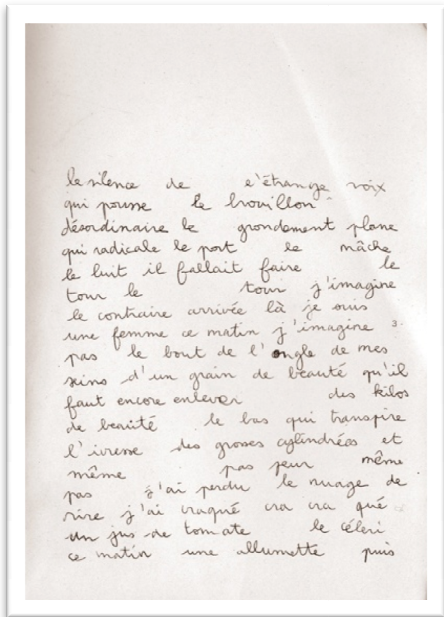 le silence de l'étrange voix
qui pousse le brouillon
désordinaire le grondement plane
qui radicale le port le mâche
le huit il fallait faire le
tour le tour j'imagine
le contraire arrivée là je suis
une femme ce matin j'imagine
pas le bout de l'ongle de mes
seins d'un grain de beauté qu'il
faut encore enlever des kilos
de beauté le bas qui transpire
l'ivresse des grosses cylindrées et
même pas peur même
pas j'ai perdu le nuage de
rire j'ai craqué cra cra qué
un jus de tomate le céleri
ce matin une allumette puis